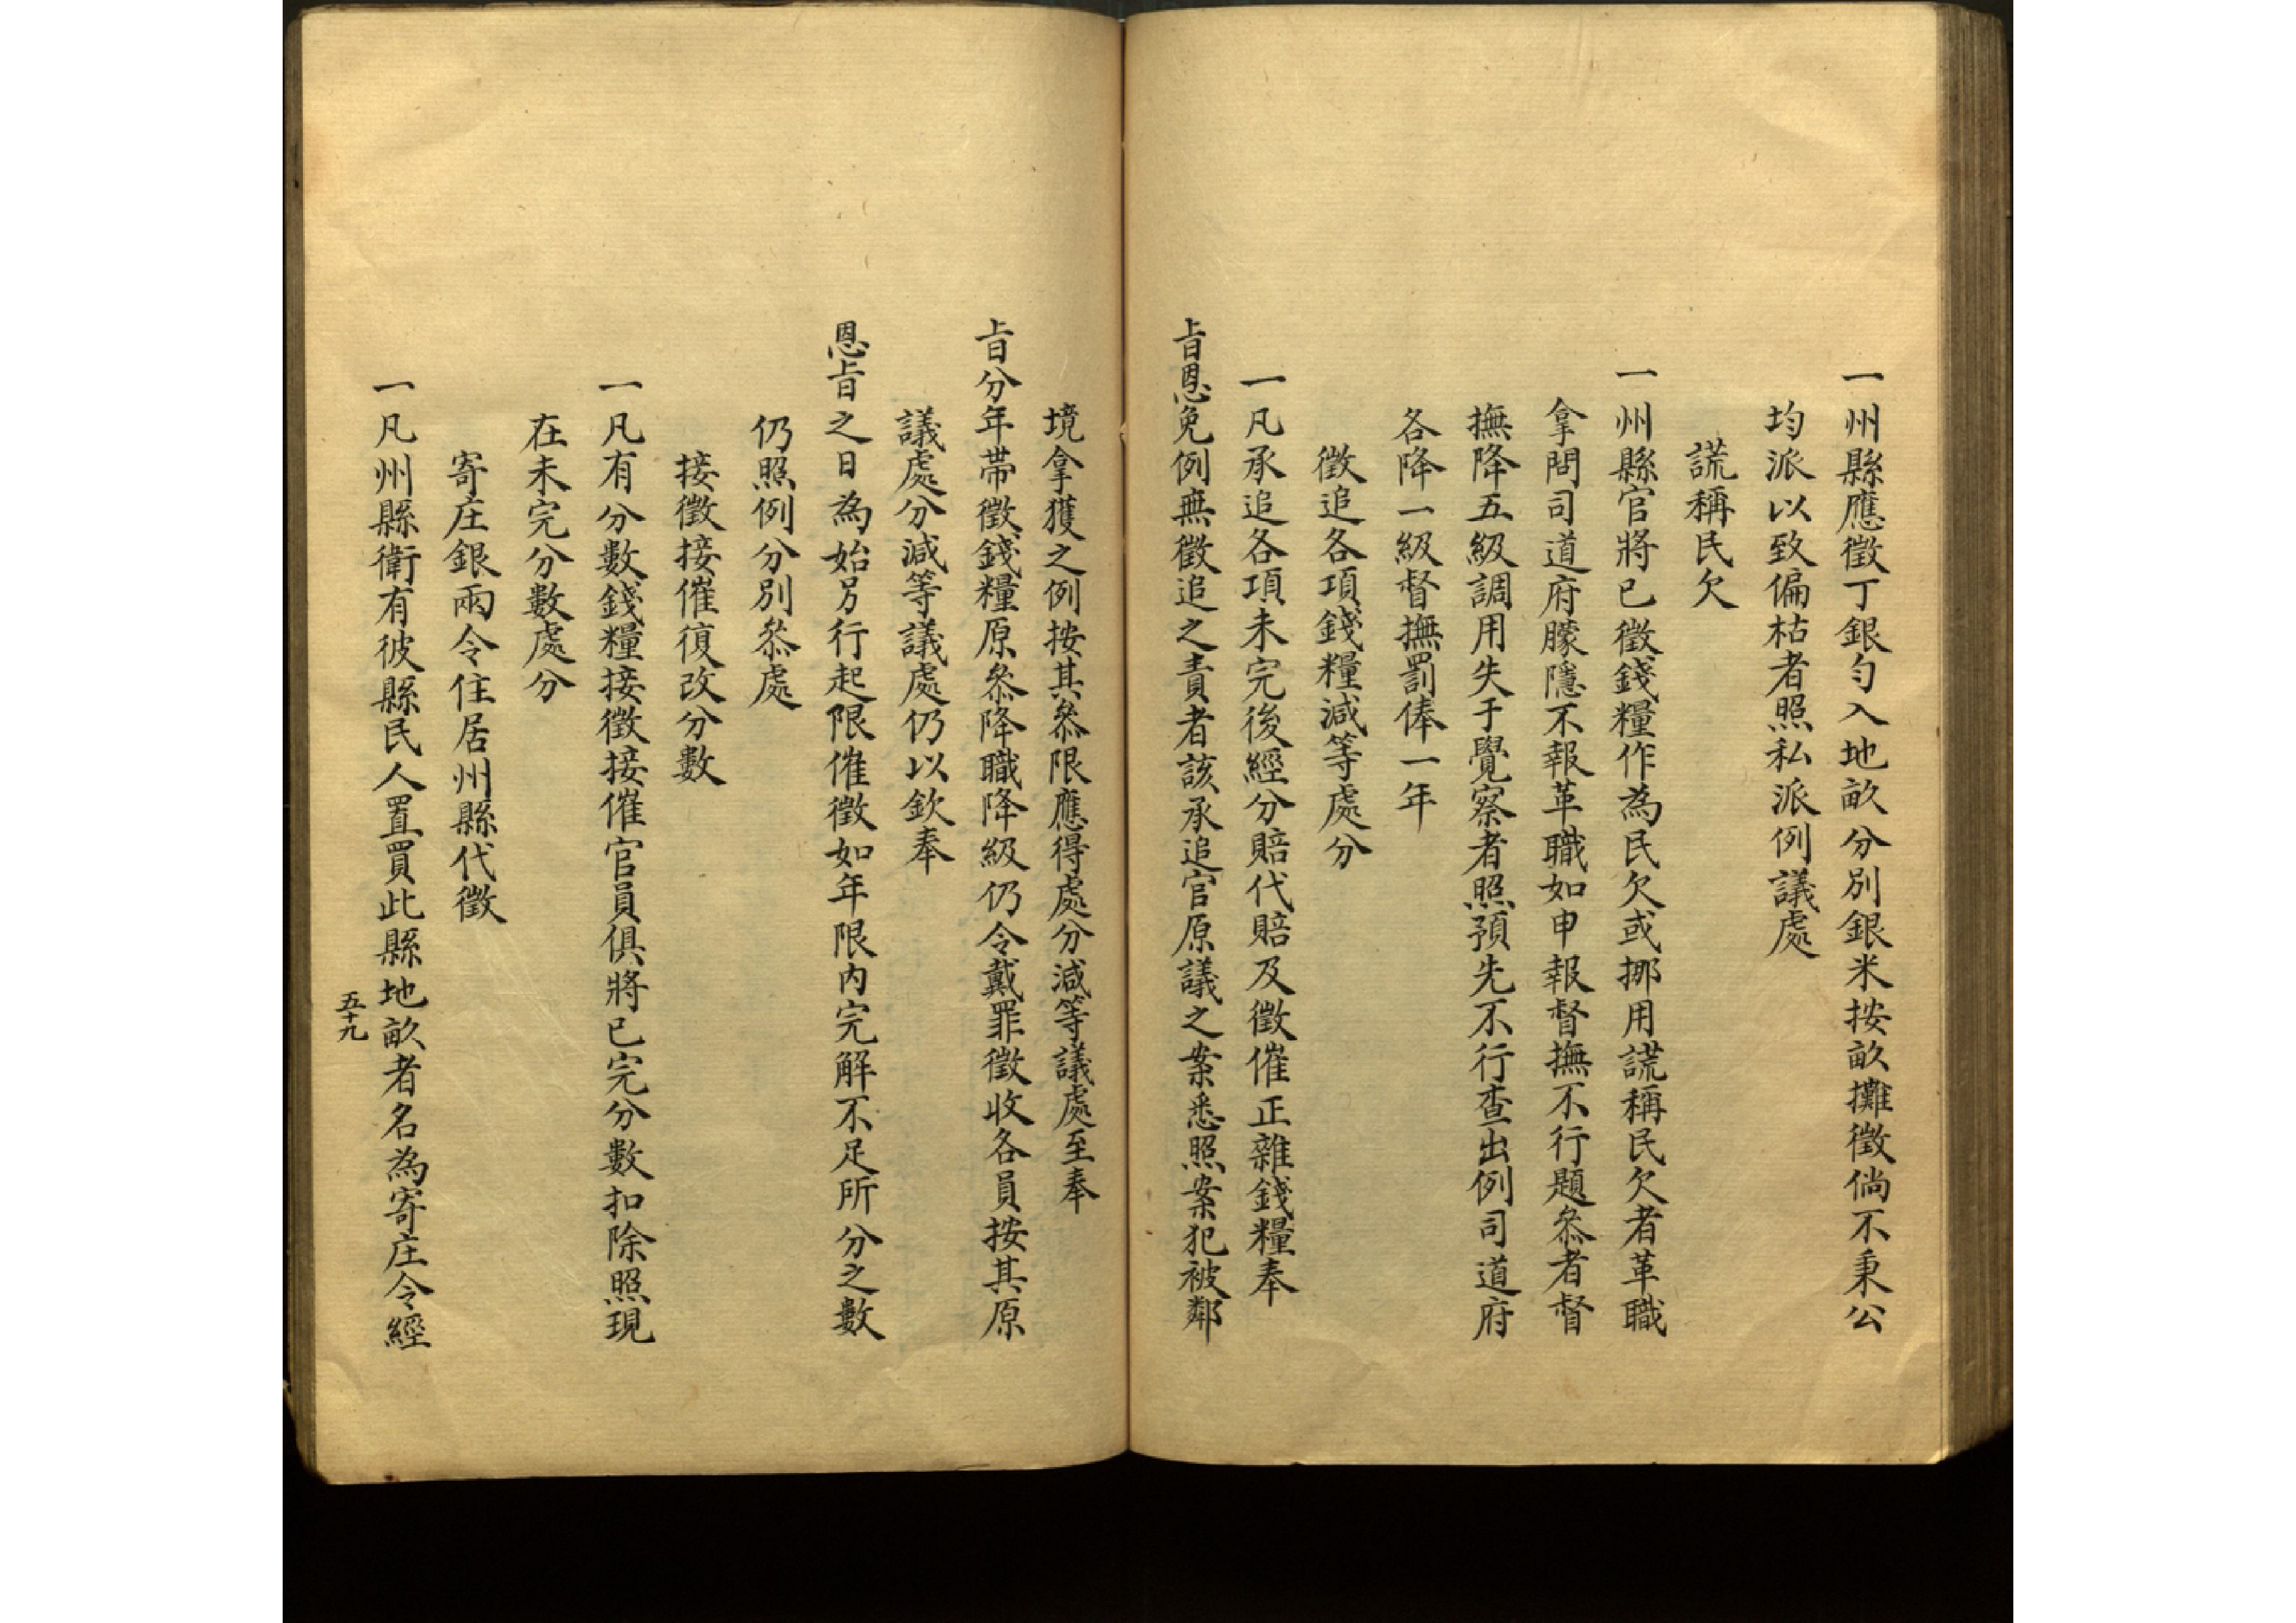 一州縣應徵丁銀勻入地畝分別銀米按畝攤徵倘不秉公
均派以致偏枯者照私派例議處
謊稱民欠
一州縣官將已徵錢糧作為民欠或挪用謊稱民欠者革職
拿問司道府朦隱不報革職如申報督撫不行題叅者督
撫降五級調用失于覺察者照預先不行查出例司道府
各降一級督撫罰俸一年
徵追各項錢糧減等處分
一凡承追各項未完後經分賠代賠及徵催正雜錢糧奉
旨恩免例無徵追之責者該承追官原議之案悉照案犯被鄰
境拿獲之例按其叅限應得處分減等議處至奉
旨分年帶徵錢糧原叅降職降級仍令戴罪徵收各員按其原
議處分減等議處仍以欽奉
恩旨之日為始另行起限催徵如年限內完解不足所分之數
仍照例分別叅處
接徵接催復改分數
一凡有分數錢糧接徵接催官員俱將已完分數扣除照現
在未完分數處分
寄庄銀兩令住居州縣代徵
一凡州縣衛有彼縣民人置買此縣地畝者名為寄庄令經
五十九